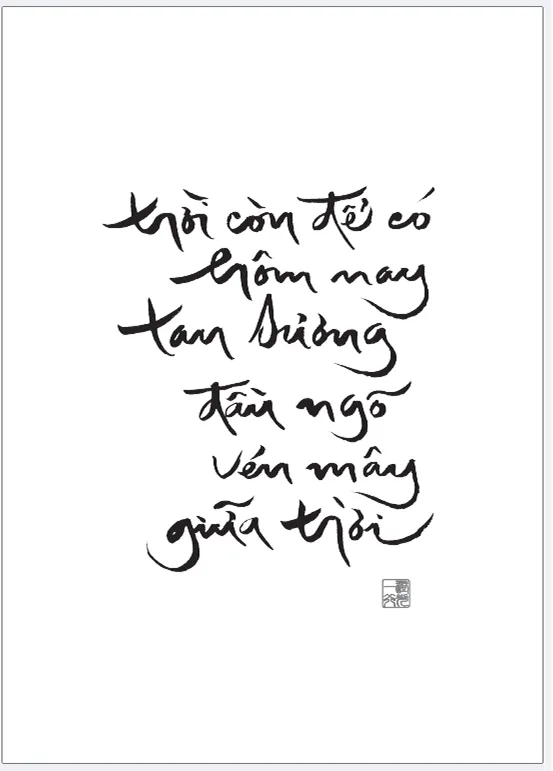 trời còn để có
hôm nay
tan sương
đầu ngõ
vén mây
giữa trời